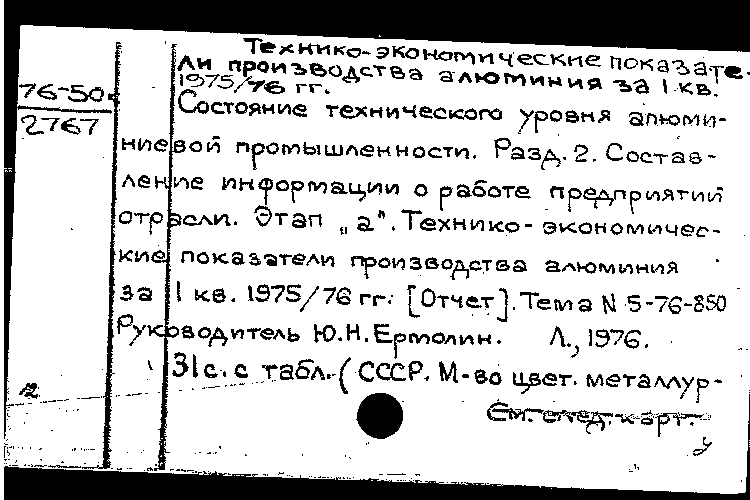 Технико-экономические показате-
ли производства алюминия за 1 кв.
1975/76 гг.
76-50
2767
Состояние технического уровня алюми-
ниевой промышленности. Разд. 2. Состав-
ление информации о работе предприятий
отрасли. Этап „а". Технико-экономичес-
кие показатели производства алюминия
за 1 кв. 1975/76 гг. [Отчет]. Тема N 5-76-850
Руководитель Ю.Н. Ермолин. Л., 1976.
31 с. с табл. (СССР. М-во цвет. металлур-
См. след. карт.
12
у